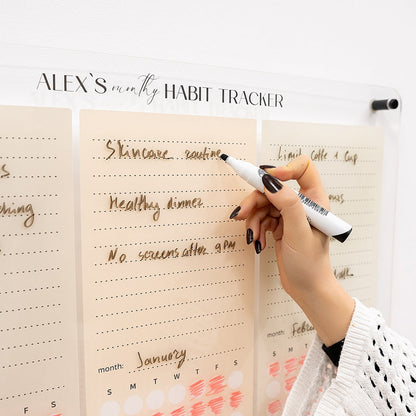 ALEX`S monthly HABIT TRACKER
Skincare routine
Healthy dinner
No screens after 9 PM
month: January
S M T W T F S
Limit Coffe 1 Cup
month:
S M